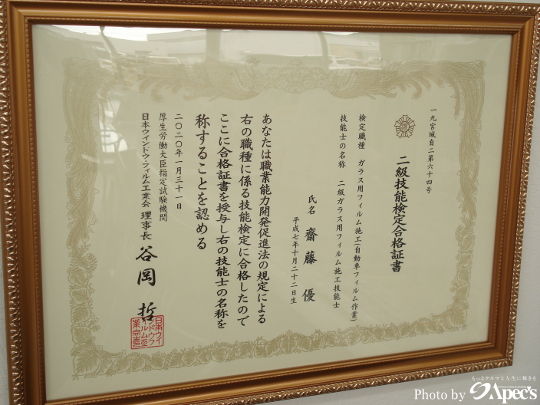 一九宮城自二第六十四号
二級技能検定合格証書
検定職種　ガラス用フィルム施工(自動車フィルム作業)
技能士の名称　二級ガラス用フィルム施工技能士
氏名　齋藤　優
平成七年十月二十二日生
あなたは職業能力開発促進法の規定による
右の職種に係る技能検定に合格したので
ここに合格証書を授与し右の技能士の名称を
称することを認める
二〇二〇年一月三十一日
厚生労働大臣指定試験機関
日本ウィンドウ・フィルム工業会 理事長　谷岡　哲
日本ウィンドウフィルム工業会
Photo by Apec's